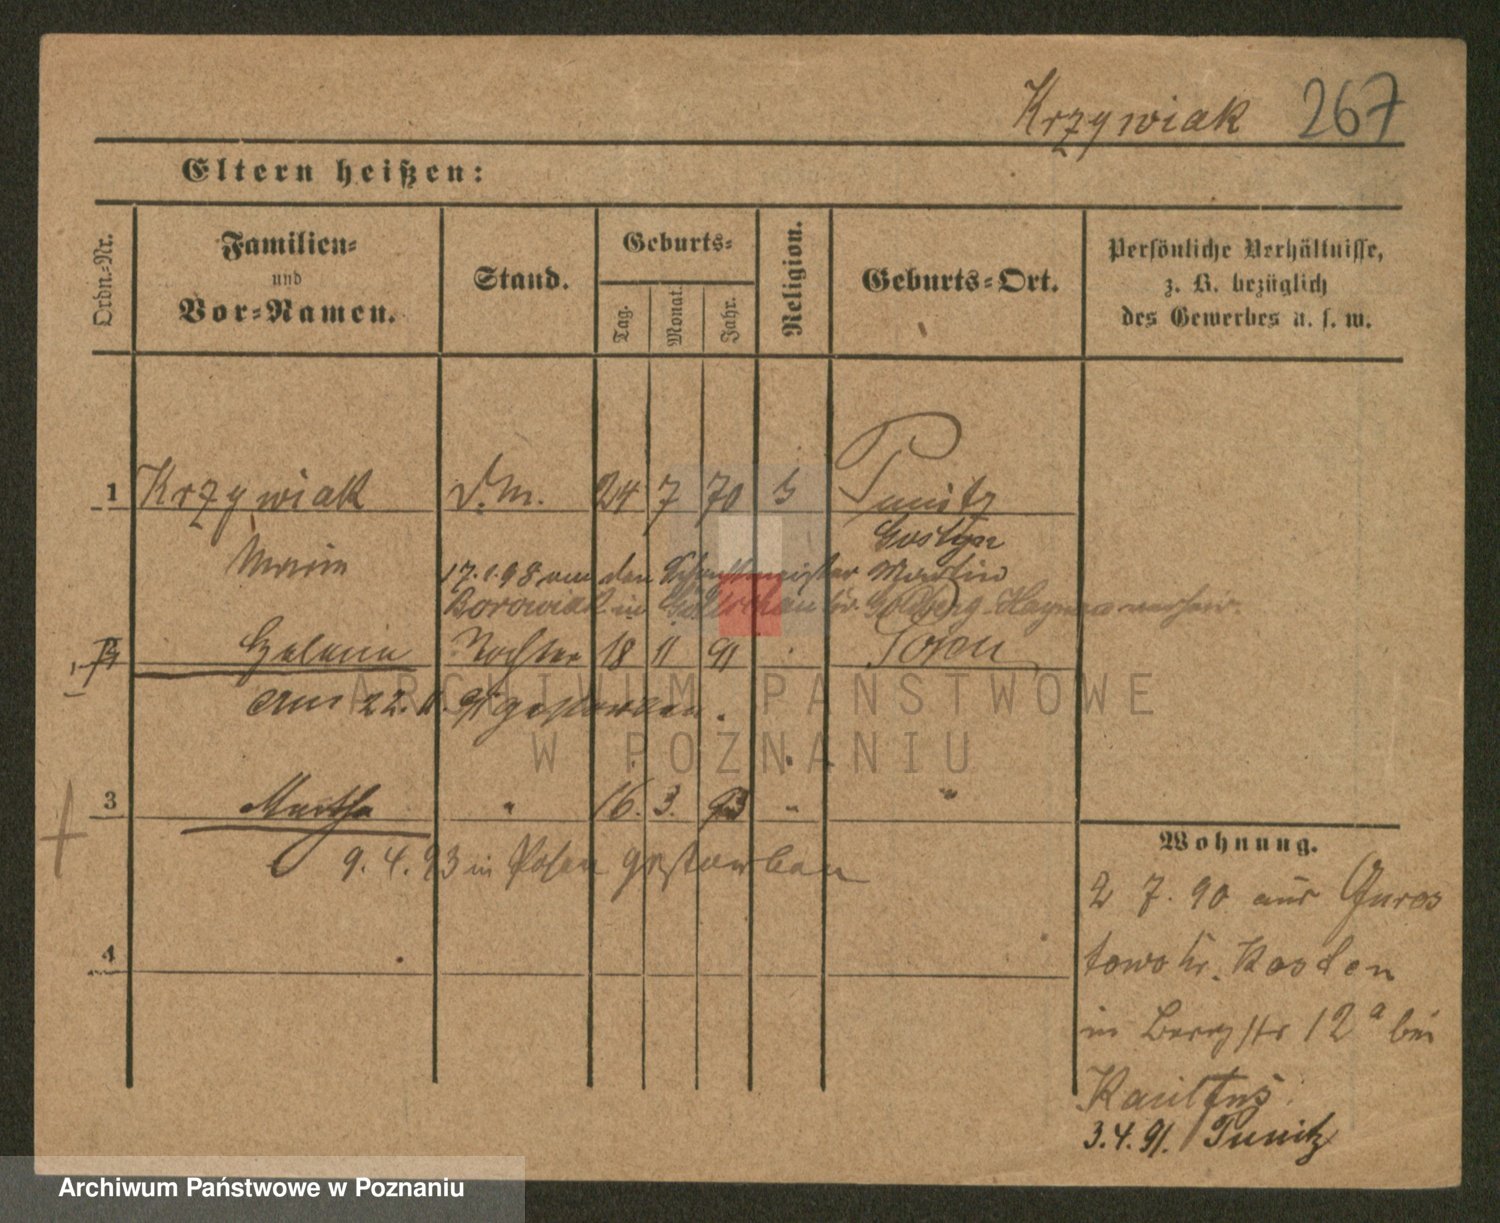 Krzywiak 267
Eltern heißen:
Ordn.-Nr.
Familien-
und
Vor-Namen.
Stand.
Geburts-
Tag.
Monat.
Jahr.
Religion.
Geburts-Ort.
Persönliche Verhältnisse,
z. B. bezüglich
des Gewerbes u. s. w.
1 Krzywiak D.M. 24 7 70 Punitz
Gostyn
Maria 17.1.98 an den Martin
Borowiak in Kr. Goldberg-Haynau
Helena Tochter 18 11 91 Posen
am 22. 11. 91 gestorben.
3 Martha " 16. 3. 93 " "
9. 4. 93 in Posen gestorben
4
Wohnung.
2 7. 90 aus Guros
towo Kr. Kosten
in Bergstr 12a bei
3.4.91. Punitz
ARCHIWUM PAŃSTWOWE
W POZNANIU
Archiwum Państwowe w Poznaniu